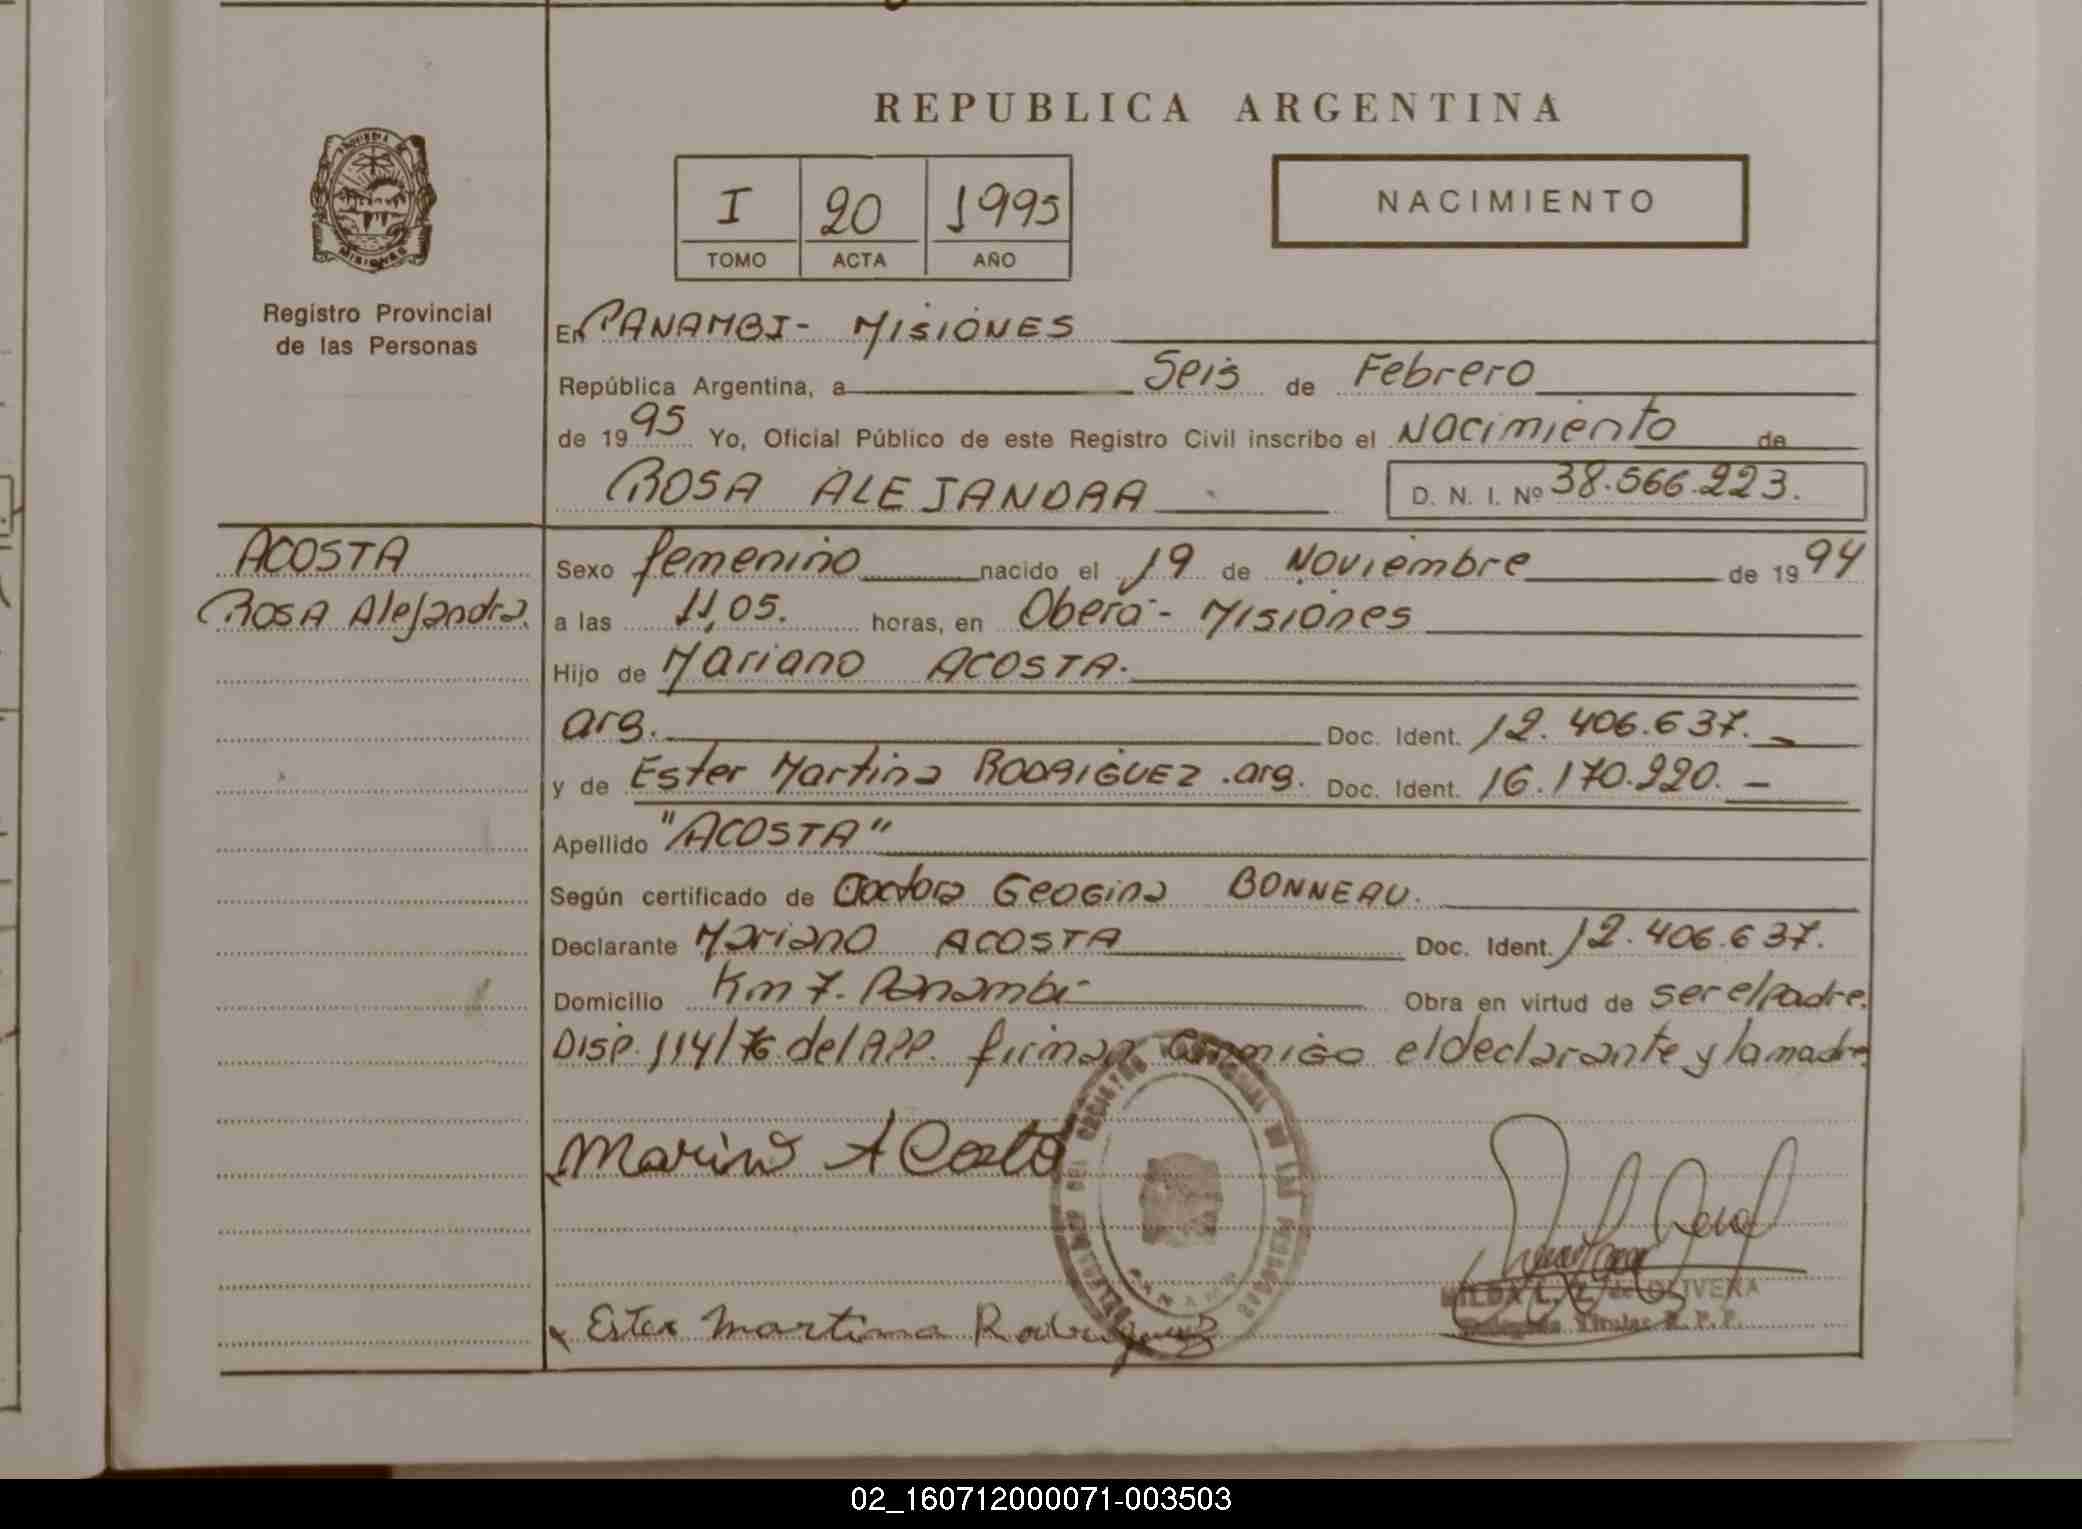 REPUBLICA ARGENTINA
I 20 1995
TOMO ACTA AÑO
NACIMIENTO
PROVINCIA DE
MISIONES
Registro Provincial
de las Personas
En PANAMBI- MISIONES
República Argentina, a Seis de Febrero
de 1995 Yo, Oficial Público de este Registro Civil inscribo el Nacimiento de
ROSA ALEJANDRA D. N. I. Nº 38.566.223.
ACOSTA
Rosa Alejandra.
Sexo femenino nacido el 19 de Noviembre de 1994
a las 11,05. horas, en Oberá - Misiones
Hijo de Mariano ACOSTA.
arg. Doc. Ident. 12.406.637.-
y de Ester Martina RODRIGUEZ .arg. Doc. Ident. 16.170.220.-
Apellido "ACOSTA"
Según certificado de Doctora Geogina BONNEAU.
Declarante Mariano ACOSTA Doc. Ident. 12.406.637.
Domicilio Km 7. Panambi Obra en virtud de ser el Padre.
Disp. 114/76 del R.P.P. firman conmigo el declarante y la madre
Marino Acosta
DELEGACION DEL REGISTRO PROVINCIAL DE LAS PERSONAS
PANAMBI
HILDA L. Z. de OLIVERA
Delegada Titular R. P. P.
Ester Martina Rodriguez
02_160712000071-003503